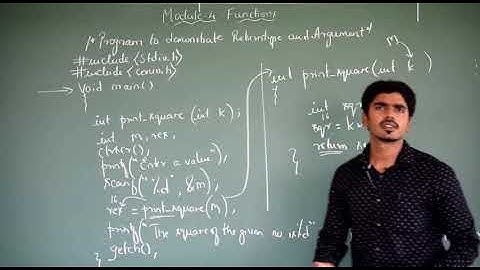 Module-4 Functions
/* Program to demonstrate Returntype and Argument */
#include <stdio.h>
#include <conio.h>
void main()
{
int print_square (int k);
int m, res;
clrscr();
printf("Enter a value");
scanf("%d", &m);
16
res = print_square(m);
printf("The square of the given no is %d"
getch();
}
m
int print_square(int k)
{
int sqr
16
sqr = k
return
}